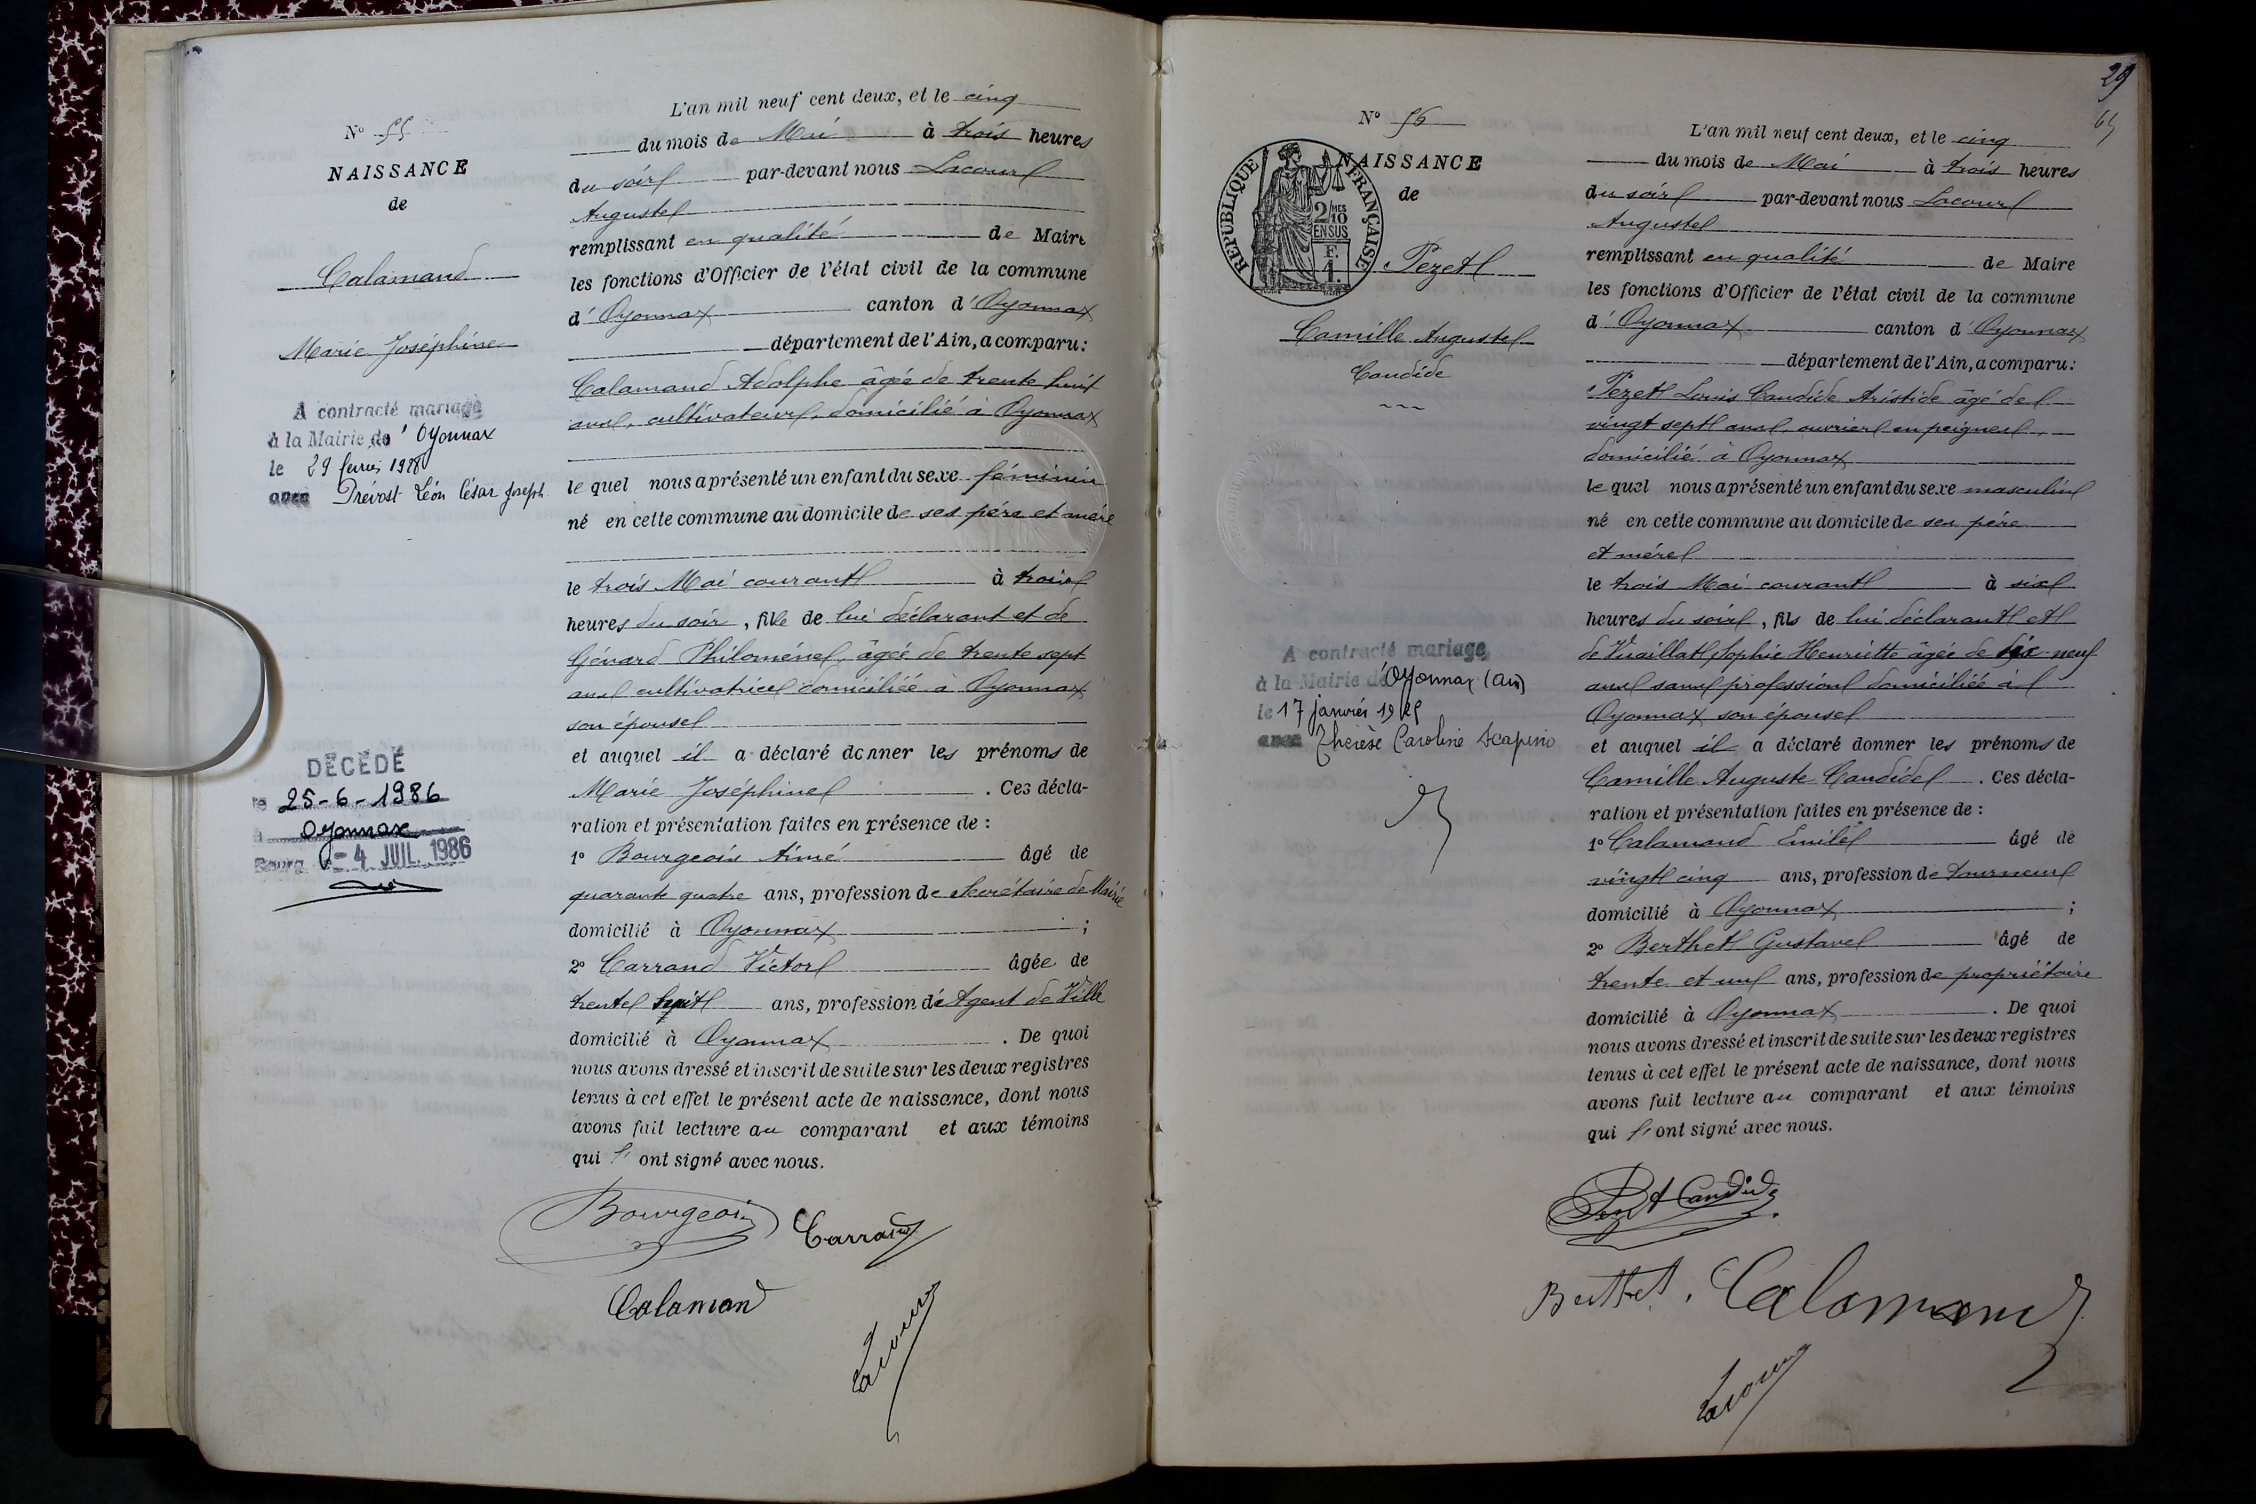 N° 55
NAISSANCE
de
Calamand
Marie Joséphine
A contracté mariage
à la Mairie de' Oyonnax
le 29 février 1928
avec Prévost Léon César Joseph
DÉCÉDÉ
le 25-6-1986
à Oyonnax
Bourg, le - 4 JUIL. 1986
L'an mil neuf cent deux, et le cinq
du mois de Mai à trois heures
du soir par-devant nous Lacour
Auguste
remplissant en qualité de Maire
les fonctions d'Officier de l'état civil de la commune
d' Oyonnax canton d' Oyonnax
département de l'Ain, a comparu:
Calamand Adolphe âgée de trente huit
ans, cultivateur, domicilié à Oyonnax
le quel nous a présenté un enfant du sexe féminin
né en cette commune au domicile de ses père et mère
le trois Mai courant à trois
heures du soir, fille de lui déclarant et de
Génard Philomène, âgée de trente sept
ans cultivatrice domiciliée à Oyonnax
son épouse
et auquel il a déclaré donner les prénoms de
Marie Joséphine . Ces décla-
ration et présentation faites en présence de :
1° Bourgeois Aimé âgé de
quarante quatre ans, profession de Secrétaire de Mairie
domicilié à Oyonnax ;
2° Carrand Victor âgée de
trente huit ans, profession de Agent de Ville
domicilié à Oyonnax . De quoi
nous avons dressé et inscrit de suite sur les deux registres
tenus à cet effet le présent acte de naissance, dont nous
avons fait lecture au comparant et aux témoins
qui l' ont signé avec nous.
Bourgeois Carrand
Calamand
Lacour
29
N° 56
NAISSANCE
de
RÉPUBLIQUE FRANÇAISE
2/MES
10
EN SUS
F.
1.
Pezet
Camille Auguste
Candide
A contracté mariage
à la Mairie d'Oyonnax (Ain)
le 17 janvier 1925
avec Thérèse Caroline Scapino
L'an mil neuf cent deux, et le cinq
du mois de Mai à trois heures
du soir par-devant nous Lacour
Auguste
remplissant en qualité de Maire
les fonctions d'Officier de l'état civil de la commune
d' Oyonnax canton d' Oyonnax
département de l'Ain, a comparu:
Pezet Louis Candide Aristide âgé de
vingt sept ans, ouvrier en peignes,
domicilié à Oyonnax
le quel nous a présenté un enfant du sexe masculin
né en cette commune au domicile de ses père
et mère
le trois Mai courant à six
heures du soir, fils de lui déclarant et
de Vuaillat Sophie Henriette âgée de dix-neuf
ans sans profession domiciliée à
Oyonnax son épouse
et auquel il a déclaré donner les prénoms de
Camille Auguste Candide . Ces décla-
ration et présentation faites en présence de :
1° Calamand Emile âgé de
vingt cinq ans, profession de tourneur
domicilié à Oyonnax ;
2° Berthet Gustave âgé de
trente et un ans, profession de propriétaire
domicilié à Oyonnax . De quoi
nous avons dressé et inscrit de suite sur les deux registres
tenus à cet effet le présent acte de naissance, dont nous
avons fait lecture au comparant et aux témoins
qui l' ont signé avec nous.
Pezet Candide
Berthet. Calamand
Lacour